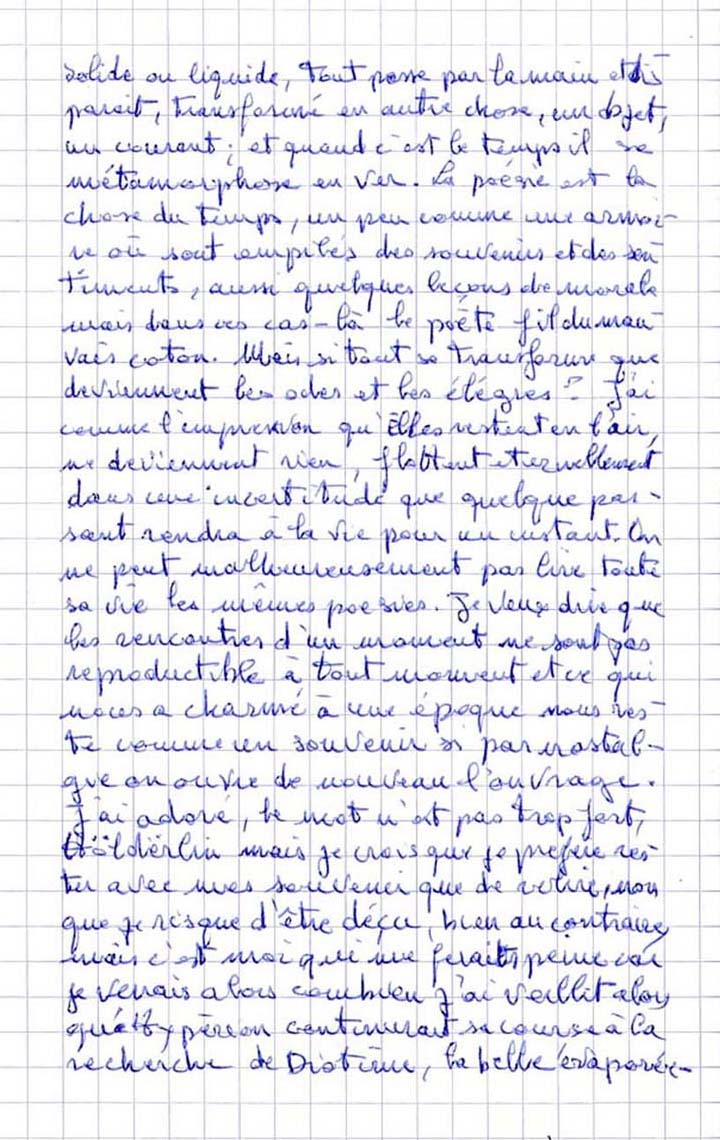 solide ou liquide, tout passe par la main et dis
parait, transformé en autre chose, un objet,
un courant ; et quand c'est le temps il se
métamorphose en ver. La poésie est la
chose du temps, un peu comme une armoi-
re où sont empilés des souvenirs et des sen
timents, aussi quelques leçons de morale
mais dans ces cas-là le poète fil du mau
vais coton. Mais si tout se transforme que
deviennent les odes et les élégies ? J'ai
comme l'impression qu'elles restent en l'air,
ne deviennent rien, flottent eternellement
dans une incertitude que quelque pas-
sant rendra à la vie pour un instant. On
ne peut malheureusement pas lire toute
sa vie les mêmes poesies. Je veux dire que
les rencontres d'un moment ne sont pas
reproductible à tout moment et ce qui
nous a charmé à une époque nous res-
te comme un souvenir si par nostal-
gie on ouvre de nouveau l'ouvrage.
J'ai adoré, le mot n'est pas trop fort,
Hölderlin mais je crois que je préfère res
ter avec mes souvenir que de relire, non
que je risque d'être déçu, bien au contraire,
mais c'est moi qui me ferait peine car
je verrais alors combien j'ai vieillit alors
qu'Hypérion continuerait sa course à la
recherche de Diotime, la belle évaporée-